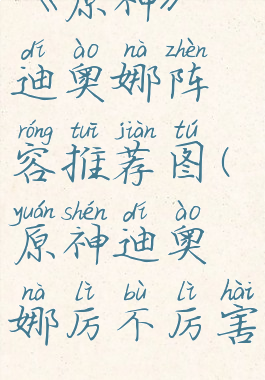 《原神》
dí ào nà zhèn
迪奥娜阵
róng tuī jiàn tú
容推荐图(
yuán shén dí ào
原神迪奥
nà lì bù lì hài
娜厉不厉害